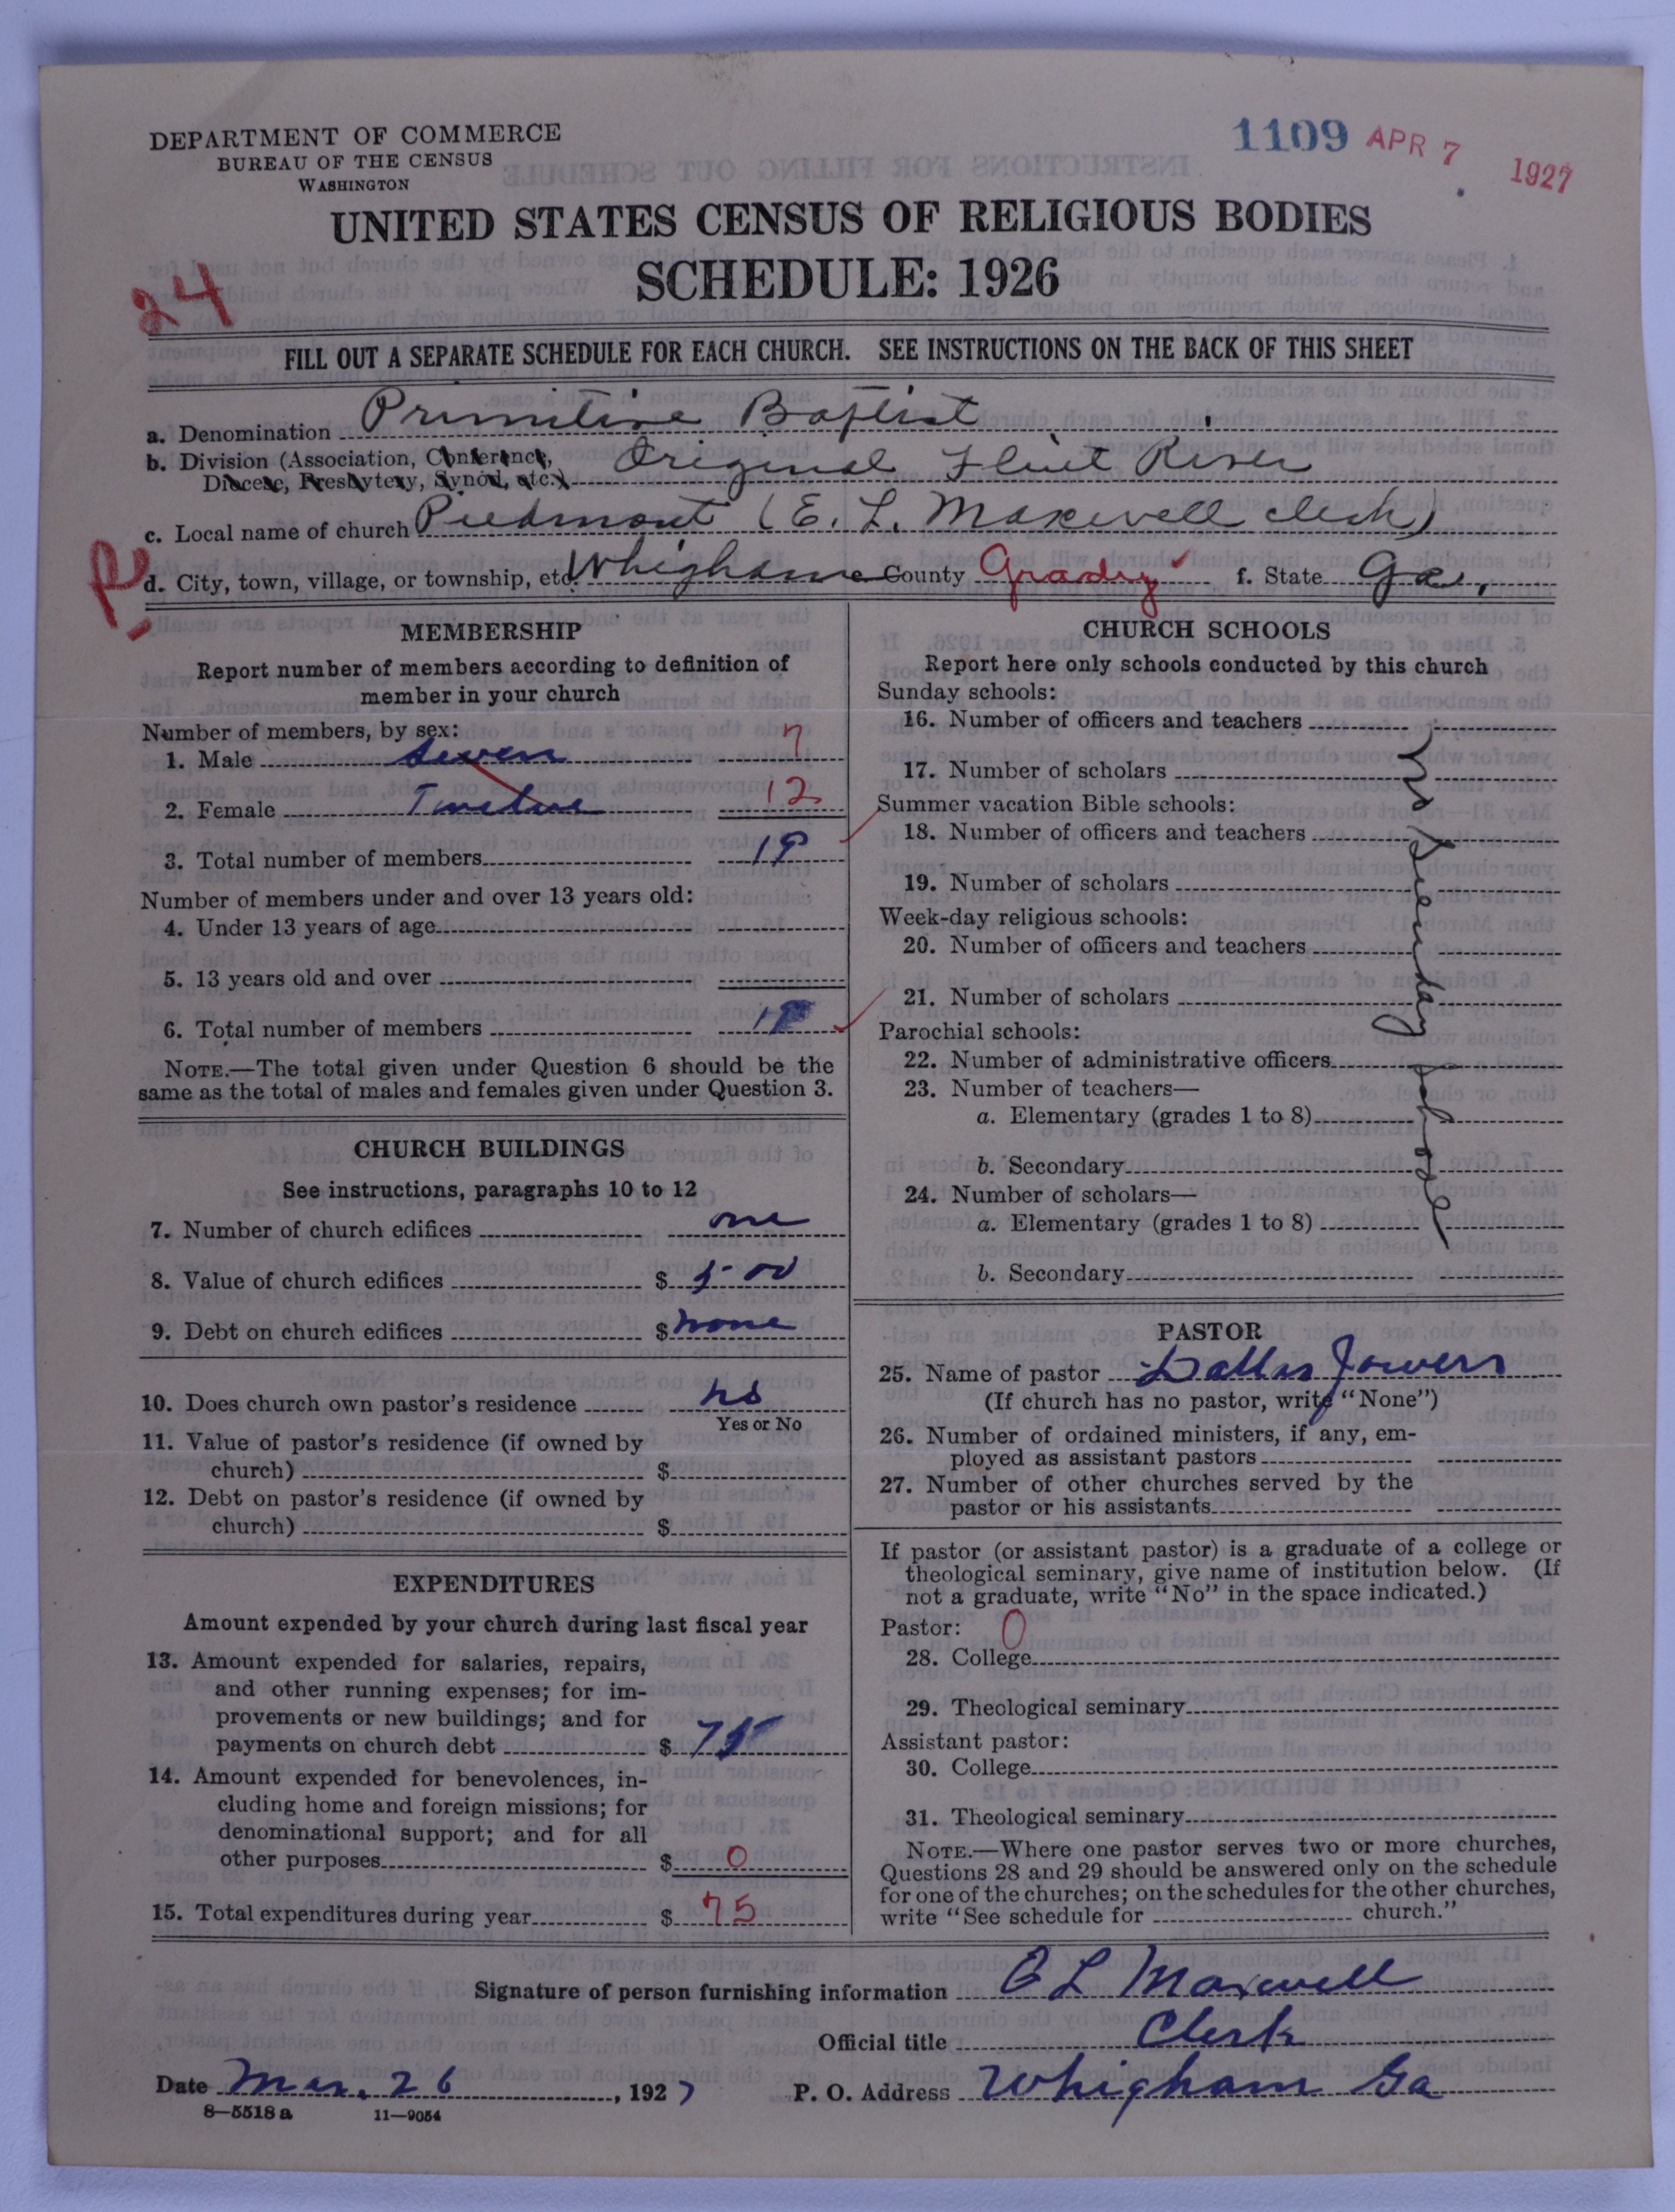 DEPARTMENT OF COMMERCE
BUREAU OF THE CENSUS
WASHINGTON
1109 APR 7 1927
UNITED STATES CENSUS OF RELIGIOUS BODIES
SCHEDULE: 1926
24
FILL OUT A SEPARATE SCHEDULE FOR EACH CHURCH. SEE INSTRUCTIONS ON THE BACK OF THIS SHEET
a. Denomination Primitive Baptist
b. Division (Association, Conference, Original Flint River
Diocese, Presbytery, Synod, etc.)
c. Local name of church Piedmont (E. L. Maxwell clerk)
d. City, town, village, or township, etc. Whigham e County Grady f. State Ga.
MEMBERSHIP
Report number of members according to definition of
member in your church
Number of members, by sex:
1. Male seven 7
2. Female Twelve 12
3. Total number of members 19
Number of members under and over 13 years old:
4. Under 13 years of age
5. 13 years old and over
6. Total number of members 19
NOTE.—The total given under Question 6 should be the
same as the total of males and females given under Question 3.
CHURCH BUILDINGS
See instructions, paragraphs 10 to 12
7. Number of church edifices one
8. Value of church edifices $ 500
9. Debt on church edifices $ none
10. Does church own pastor's residence no
Yes or No
11. Value of pastor's residence (if owned by
church) $
12. Debt on pastor's residence (if owned by
church) $
EXPENDITURES
Amount expended by your church during last fiscal year
13. Amount expended for salaries, repairs,
and other running expenses; for im-
provements or new buildings; and for
payments on church debt $ 75
14. Amount expended for benevolences, in-
cluding home and foreign missions; for
denominational support; and for all
other purposes $ 0
15. Total expenditures during year $ 75
CHURCH SCHOOLS
Report here only schools conducted by this church
Sunday schools:
16. Number of officers and teachers
17. Number of scholars
Summer vacation Bible schools:
18. Number of officers and teachers
19. Number of scholars
Week-day religious schools:
20. Number of officers and teachers
21. Number of scholars
Parochial schools:
22. Number of administrative officers
23. Number of teachers—
a. Elementary (grades 1 to 8)
b. Secondary
24. Number of scholars—
a. Elementary (grades 1 to 8)
b. Secondary
no Sunday School
PASTOR
25. Name of pastor Dallas Jowers
(If church has no pastor, write "None")
26. Number of ordained ministers, if any, em-
ployed as assistant pastors
27. Number of other churches served by the
pastor or his assistants
If pastor (or assistant pastor) is a graduate of a college or
theological seminary, give name of institution below. (If
not a graduate, write "No" in the space indicated.)
Pastor: 0
28. College
29. Theological seminary
Assistant pastor:
30. College
31. Theological seminary
NOTE.—Where one pastor serves two or more churches,
Questions 28 and 29 should be answered only on the schedule
for one of the churches; on the schedules for the other churches,
write "See schedule for church."
Signature of person furnishing information E L Maxwell
Official title Clerk
Date Mar. 26, 1927 P. O. Address Whigham Ga
8—5518 a 11—9054